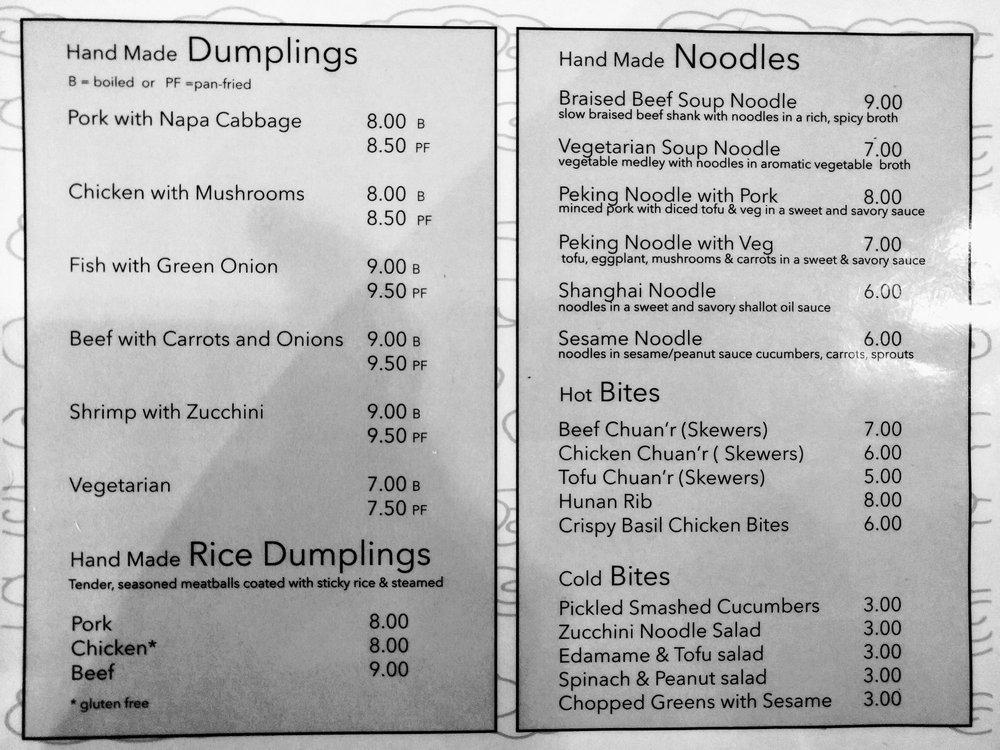 Hand Made Dumplings
B = boiled or PF =pan-fried
Pork with Napa Cabbage 8.00 B
8.50 PF
Chicken with Mushrooms 8.00 B
8.50 PF
Fish with Green Onion 9.00 B
9.50 PF
Beef with Carrots and Onions 9.00 B
9.50 PF
Shrimp with Zucchini 9.00 B
9.50 PF
Vegetarian 7.00 B
7.50 PF
Hand Made Rice Dumplings
Tender, seasoned meatballs coated with sticky rice & steamed
Pork 8.00
Chicken* 8.00
Beef 9.00
* gluten free
Hand Made Noodles
Braised Beef Soup Noodle 9.00
slow braised beef shank with noodles in a rich, spicy broth
Vegetarian Soup Noodle 7.00
vegetable medley with noodles in aromatic vegetable broth
Peking Noodle with Pork 8.00
minced pork with diced tofu & veg in a sweet and savory sauce
Peking Noodle with Veg 7.00
tofu, eggplant, mushrooms & carrots in a sweet & savory sauce
Shanghai Noodle 6.00
noodles in a sweet and savory shallot oil sauce
Sesame Noodle 6.00
noodles in sesame/peanut sauce cucumbers, carrots, sprouts
Hot Bites
Beef Chuan'r (Skewers) 7.00
Chicken Chuan'r ( Skewers) 6.00
Tofu Chuan'r (Skewers) 5.00
Hunan Rib 8.00
Crispy Basil Chicken Bites 6.00
Cold Bites
Pickled Smashed Cucumbers 3.00
Zucchini Noodle Salad 3.00
Edamame & Tofu salad 3.00
Spinach & Peanut salad 3.00
Chopped Greens with Sesame 3.00